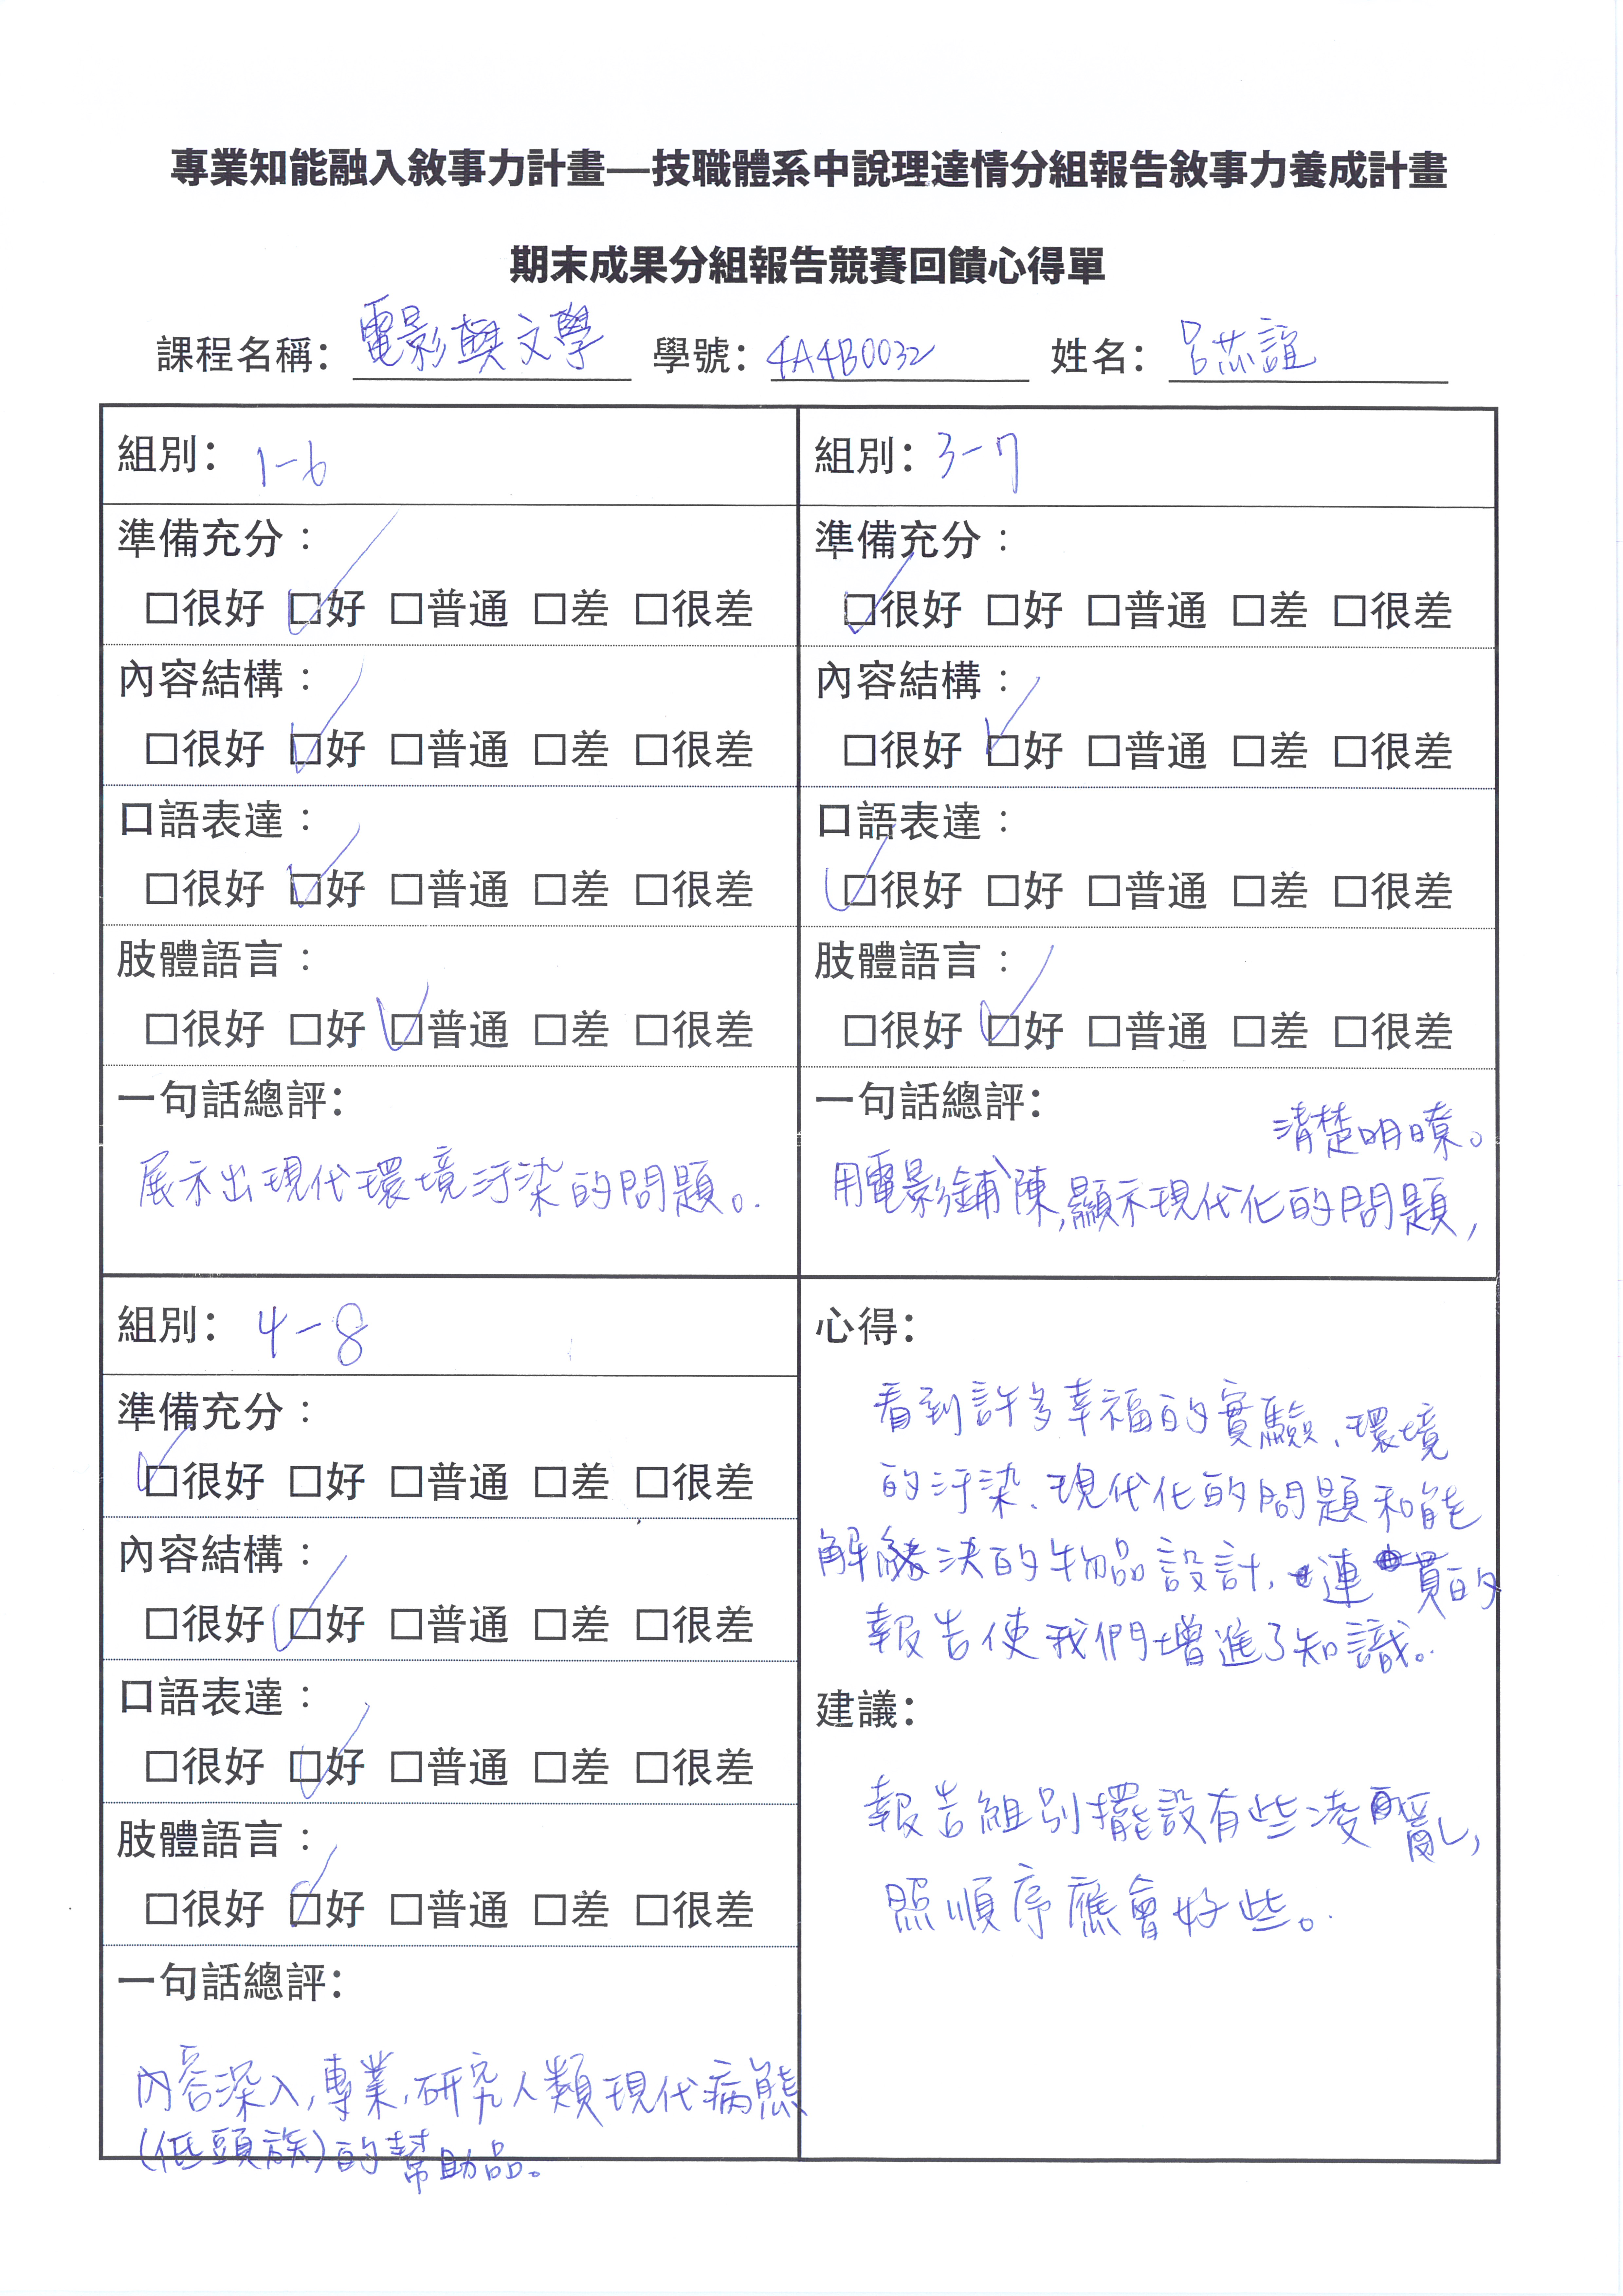 專業知能融入敘事力計畫—技職體系中說理達情分組報告敘事力養成計畫
期末成果分組報告競賽回饋心得單
課程名稱： 電影與文學 學號： 4A4B0032 姓名： 呂芯誼
組別： 1-6
準備充分：
□很好 ☑好 □普通 □差 □很差
內容結構：
□很好 ☑好 □普通 □差 □很差
口語表達：
□很好 ☑好 □普通 □差 □很差
肢體語言：
□很好 □好 ☑普通 □差 □很差
一句話總評：
展示出現代環境汙染的問題。
組別： 3-7
準備充分：
☑很好 □好 □普通 □差 □很差
內容結構：
□很好 ☑好 □普通 □差 □很差
口語表達：
☑很好 □好 □普通 □差 □很差
肢體語言：
□很好 ☑好 □普通 □差 □很差
一句話總評：
用電影鋪陳,顯示現代化的問題,
清楚明瞭。
組別： 4-8
準備充分：
☑很好 □好 □普通 □差 □很差
內容結構：
□很好 ☑好 □普通 □差 □很差
口語表達：
□很好 ☑好 □普通 □差 □很差
肢體語言：
□很好 ☑好 □普通 □差 □很差
一句話總評：
內容深入,專業,研究人類現代病態
(低頭族)的幫助品。
心得：
看到許多幸福的實驗、環境
的汙染、現代化的問題和能
解決的物品設計,連貫的
報告使我們增進了知識。
建議：
報告組別擺設有些凌亂,
照順序應會好些。